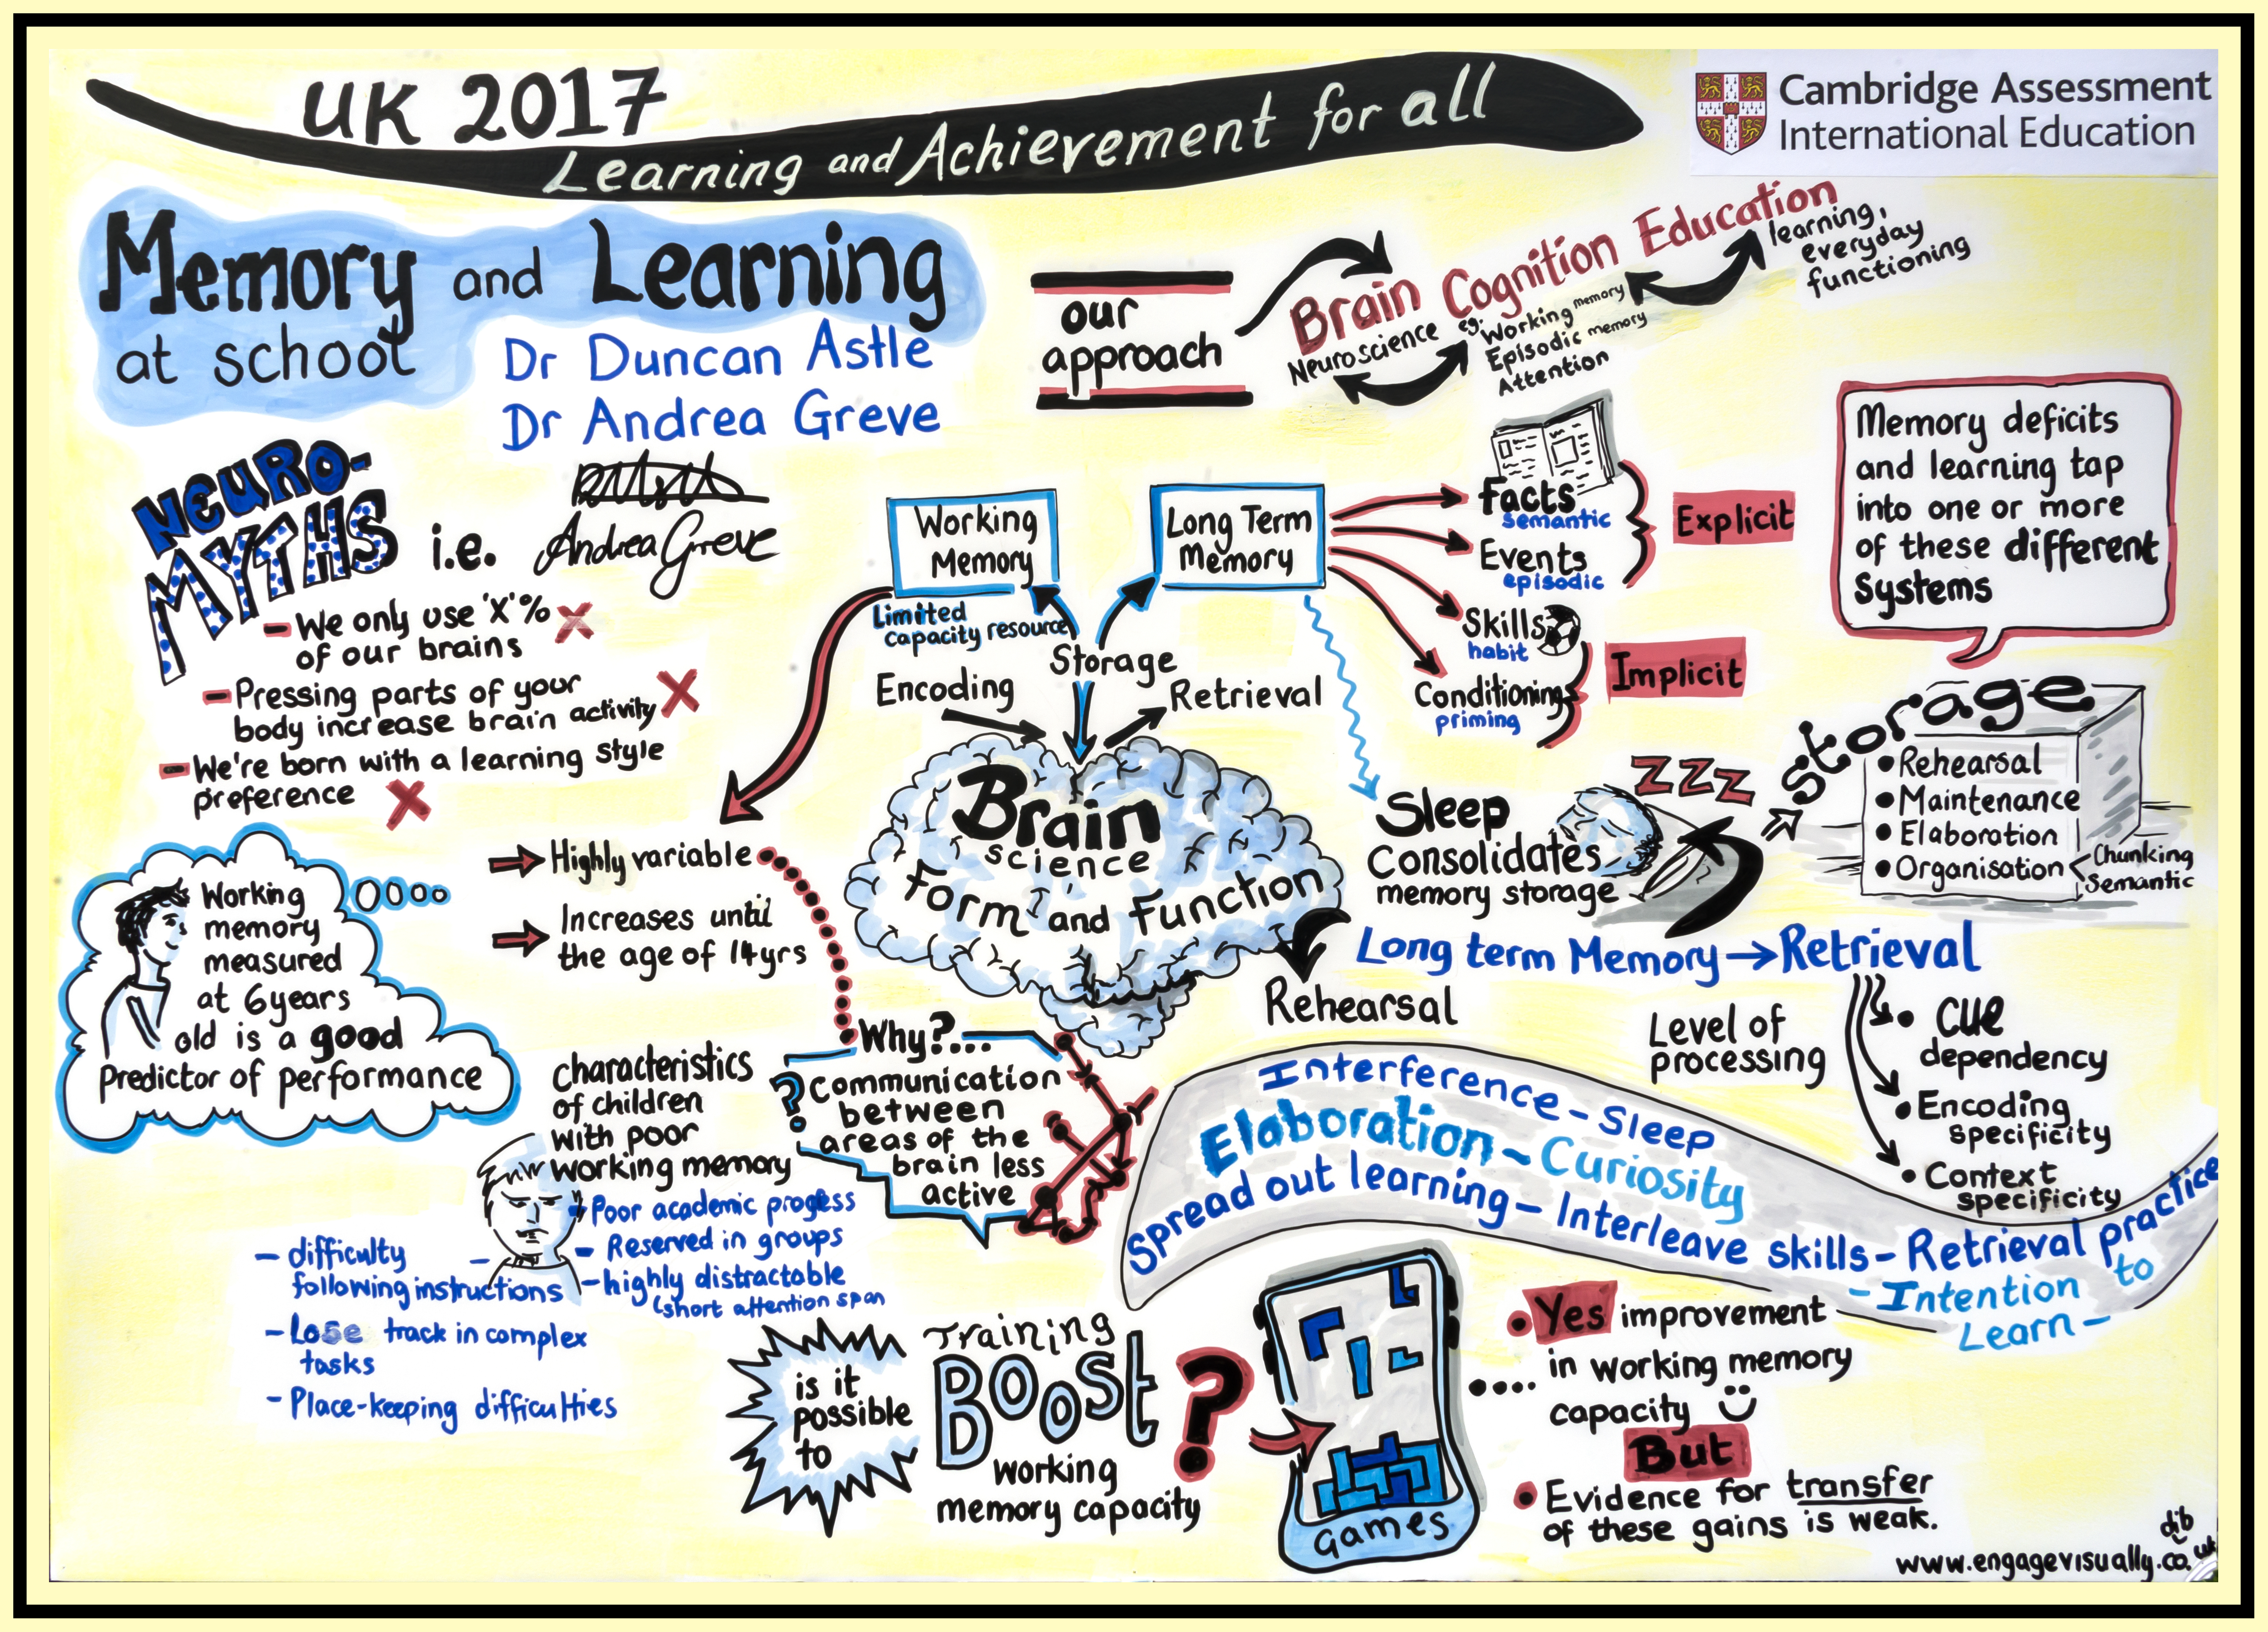 UK 2017
Learning and Achievement for all
Cambridge Assessment
International Education
Memory and Learning
at school
Dr Duncan Astle
Dr Andrea Greve
our
approach
Brain Cognition Education
Neuroscience
eg. Working memory
Episodic memory
Attention
learning,
everyday
functioning
NEURO-
MYTHS
i.e.
Andrea Greve
- We only use 'X'%
of our brains
- Pressing parts of your
body increase brain activity
- We're born with a learning style
preference
Working
Memory
Limited
capacity resource
Long Term
Memory
Facts
semantic
Events
episodic
Explicit
Skills
habit
Conditioning
priming
Implicit
Memory deficits
and learning tap
into one or more
of these different
Systems
Encoding
Storage
Retrieval
Brain
science
Form and Function
Rehearsal
ZZZ
Sleep
Consolidates
memory storage
Storage
• Rehearsal
• Maintenance
• Elaboration
• Organisation < Chunking
Semantic
Long term Memory → Retrieval
Level of
processing
• Cue
dependency
• Encoding
specificity
• Context
specificity
Highly variable
Increases until
the age of 14yrs
Working
memory
measured
at 6years
old is a good
Predictor of performance
Why?...
? Communication
between
areas of the
brain less
active
characteristics
of children
with poor
working memory
- Poor academic progess
- Reserved in groups
- highly distractable
(short attention span
- difficulty
following instructions
- Lose track in complex
tasks
- Place-keeping difficulties
Interference - Sleep
Elaboration - Curiosity
Spread out learning - Interleave skills - Retrieval practice
- Intention to
Learn -
is it
possible
to
Training
Boost
working
memory capacity
?
Games
• Yes improvement
.... in working memory
capacity
But
• Evidence for transfer
of these gains is weak.
dib
www.engagevisually.co.uk